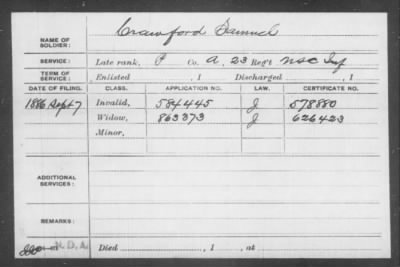 NAME OF SOLDIER: Crawford Samuel
SERVICE: Late rank, P Co. A, 23 Reg't USC Inf
TERM OF SERVICE: Enlisted , 1 Discharged , 1
DATE OF FILING. CLASS. APPLICATION NO. LAW. CERTIFICATE NO.
1886 Sept 7 Invalid, 584445 J 578880
Widow, 863373 J 626423
Minor,
ADDITIONAL SERVICES:
REMARKS:
N.D.A. Died , 1 , at